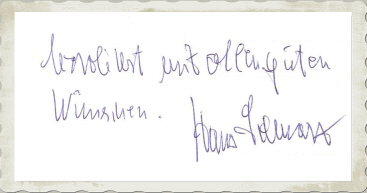 herzlichst mit allen guten
Wünschen. Hans